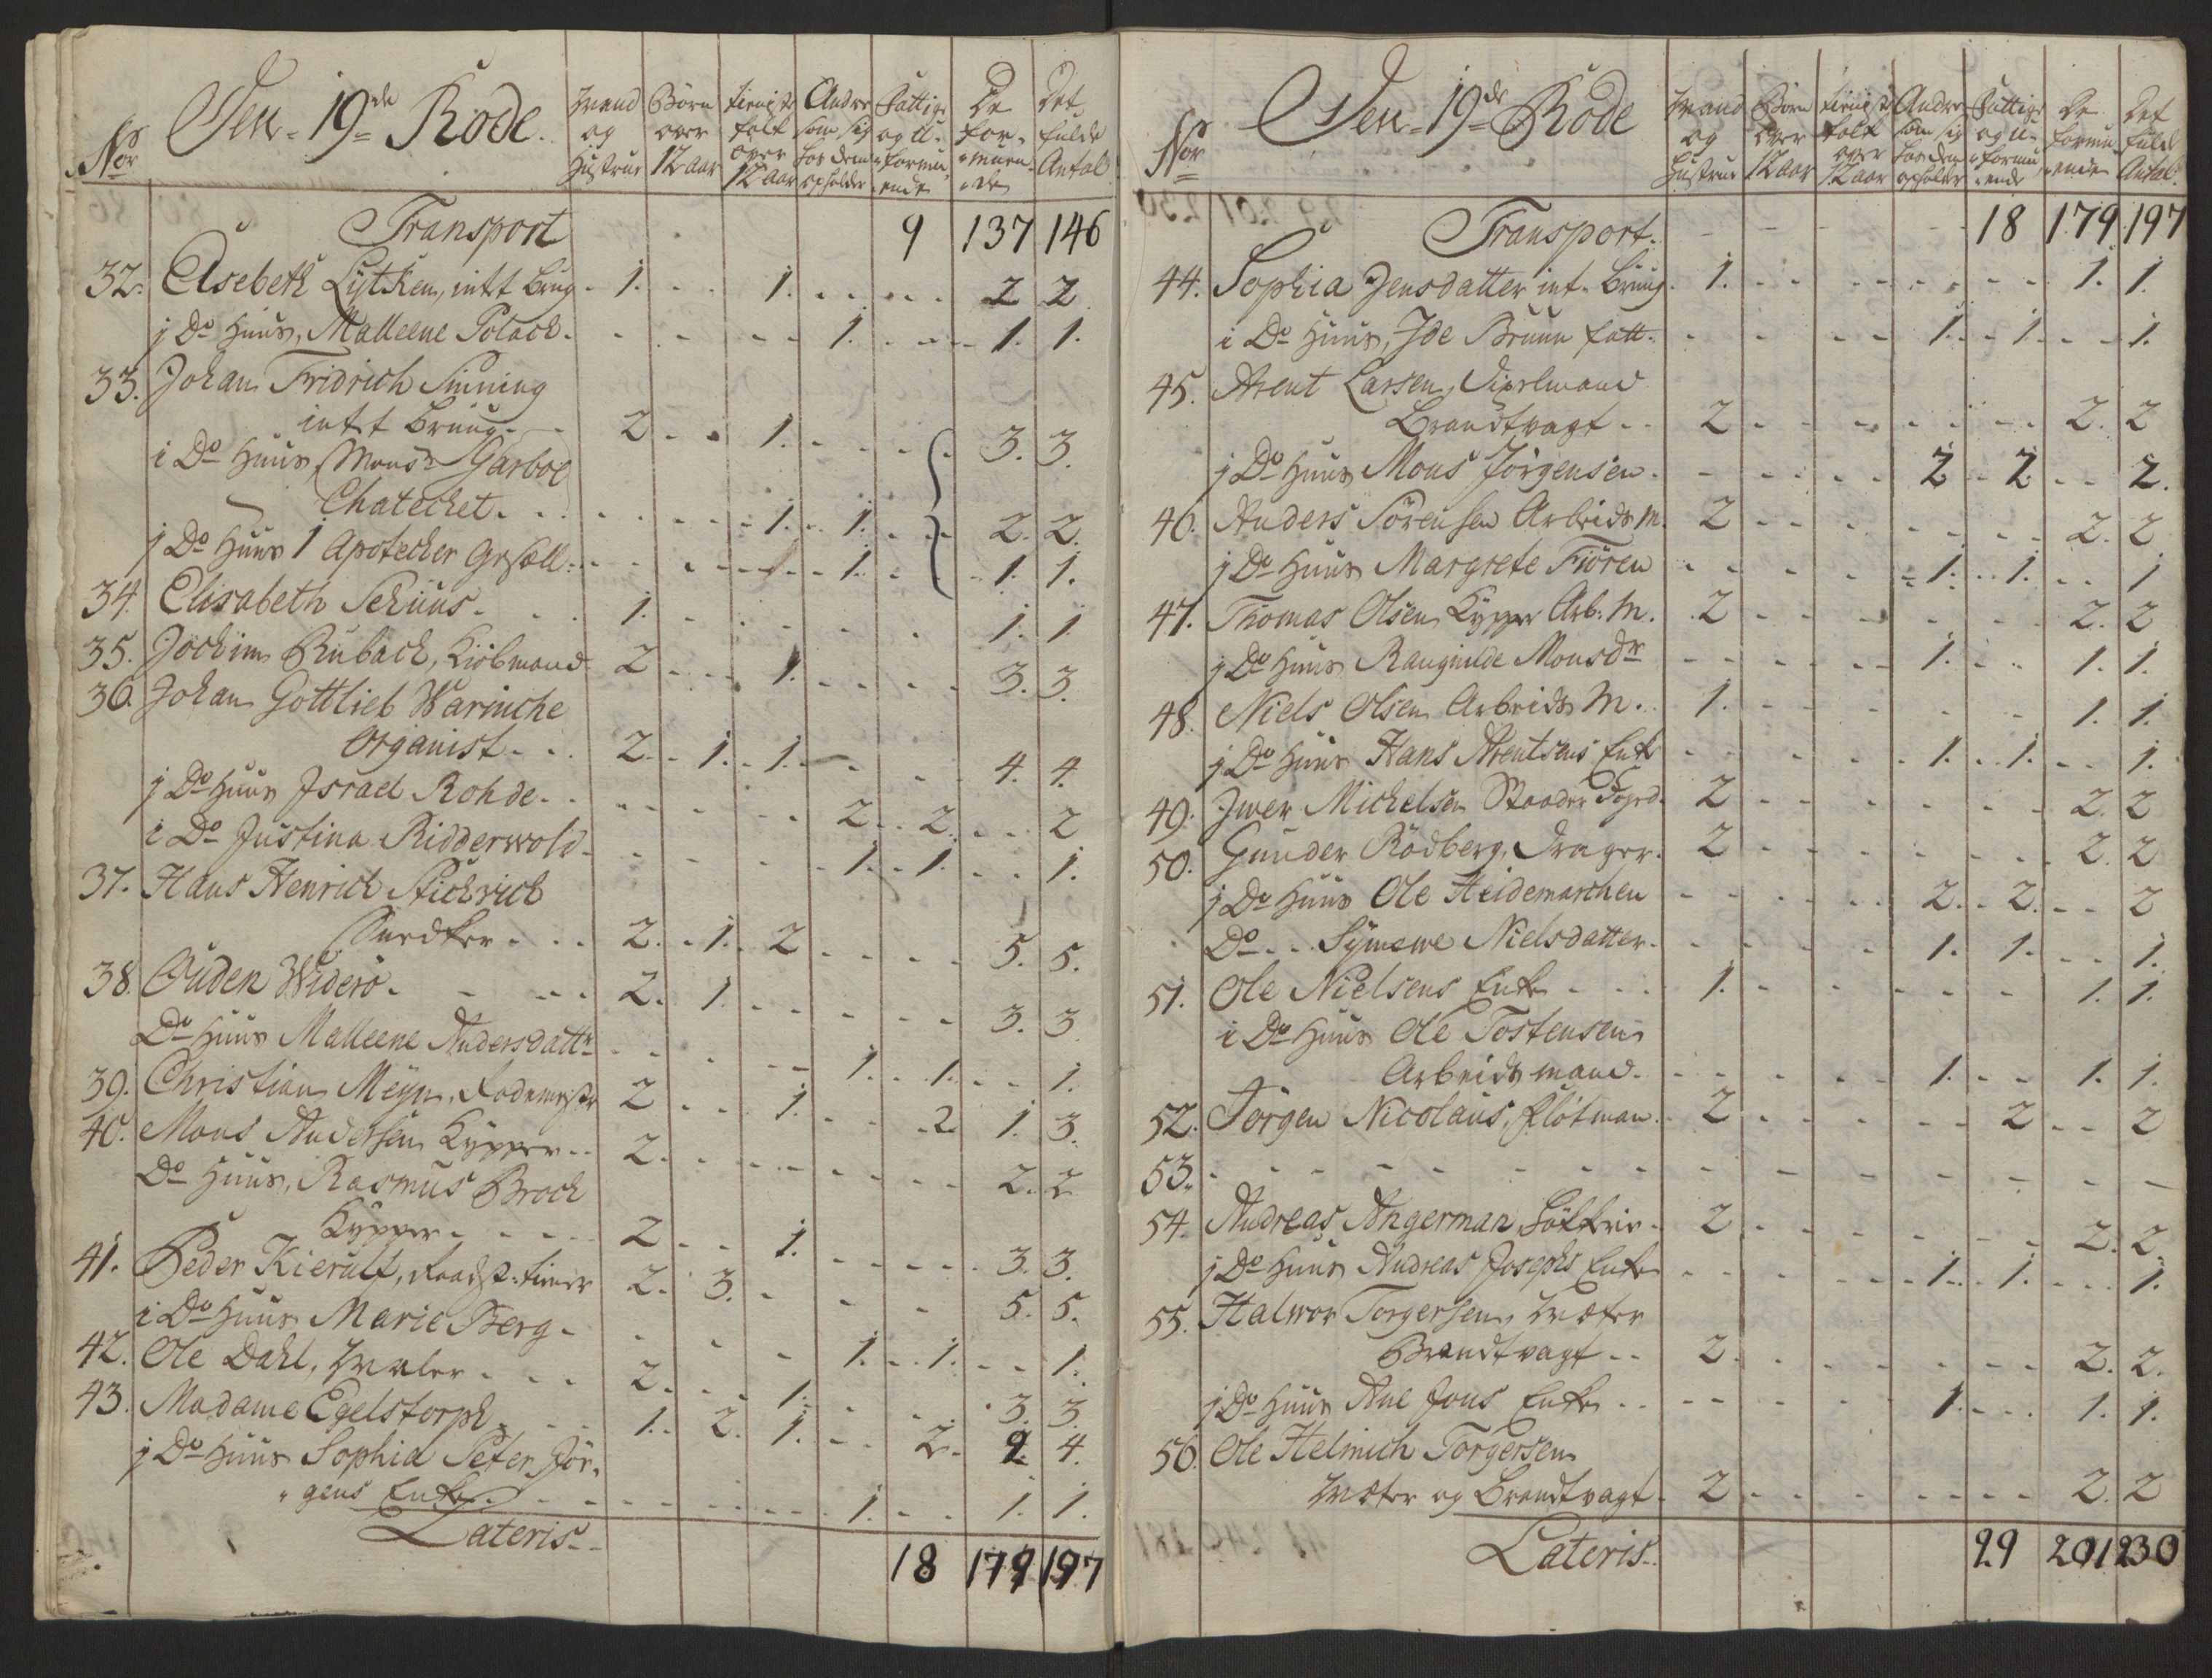 Den 19de Rode.
No
Mand og Hustrue
Børn over 12 aar
tieniste folk over 12 aar
Andre som sig hos dem opholder
Fattige og u-formuende
De formuende
Det fulde Antal
Transport 9 137 146
32. Elsebeth Lytken, intet brug - 1. - - 1. - - - 2 2
j Do Huus, Malleene Polack - - - - 1. - - 1. 1.
33. Johan Fridrich Sinning
intet Bruug - - 2 - - 1. - - - 3. 3.
i Do Huus, Monsr Garboe
Chatechet - - - - 1. - 1. - - 2. 2.
j Do Huus 1 Apotecker Gesell - - - - 1. - - 1. 1.
34. Elisabeth Schiøus - - 1. - - - - - 1. 1
35. Jochim Rubach, Kiøbmand 2 - - 1. - - - 3. 3.
36. Johan Gottlieb Warniche
Organist - - 2. - 1. - 1. - - - 4. 4.
j Do Huus Israel Rohde - - - - - 2. - 2. - - 2
i Do Justina Ridderwold - - - - 1. - 1. - - 1.
37. Hans Henrich Stichrich
Snedker - - - 2. - 1. - 2 - - - 5. 5.
38. Ouden Widerø - - - 2. 1. - - - - 3. 3
Do Huus Malleene Andersdattr - - - - 1. - 1. - - 1.
39. Christian Meyn, Rodemester 2 - - 1. - - 2 1. 3.
40. Mons Andersen Kypper - - 2. - - - - - 2. 2.
Do Huus, Rasmus Brock
Kypper - - - - 2 - - 1. - - - 3. 3.
41. Peder Kierulf, Raadst. tiener 2. 3. - - - 5. 5.
i Do Huus Marie Berg - - - - 1. - 1. - - 1.
42. Ole Dahl, Maler - - - 2. - - 1. - - - 3. 3.
43. Madame Egelstorph - - - 1. 2. 1. - - 2. 2 4.
j Do Huus Sophia Peter Jør-
gens Enke - - - - - 1. - - 1. 1.
Lateris - 18 179 197
Den 19de Rode
No
Mand og Hustrue
Børn over 12 aar
tieniste folk over 12 aar
Andre som sig hos dem opholder
Fattige og u-formuende
De formuende
Det fulde Antal
Transport - - - - 18 179 197
44. Sophia Jensdatter int. Bruug. 1. - - - - - 1. 1.
i Do Huus, Ide Bruun fatt. - - - - 1. - 1. - - 1.
45. Arent Larsen,
Brandtvagt - - 2 - - - - - 2. 2
j Do Huus Mons Jørgensen - - - - 2 - 2 - - 2.
46. Anders Sørensen Arbeids M. 2 - - - - - 2. 2
j Do Huus Margrete Fiøren - - - - 1. - 1. - - 1
47. Thomas Olsen Kypper Arb: M. 2 - - - - - 2. 2
j Do Huus Rangnilde Monsdr - - - - 1. - - 1. 1.
48. Niels Olsen Arbeids M. - 1. - - - - - 1. 1.
j Do Huus Hans Arentsens Enke - - - - 1. - 1. - - 1.
49. Iwer Michelsen 2 - - - - - 2. 2
50. Gunder Rødberg, Drager. 2 - - - - - 2. 2
j Do Huus Ole Heidemarchen - - - - 2. - 2. - - 2
Do - - Symewe Nielsdatter - - - - 1. 1. - - 1.
51. Ole Nielsens Enke - - - 1. - - - - - 1. 1.
i Do Huus Ole Tostensen
Arbeidsmand - - - - - 1. - - 1. 1.
52. Jørgen Nicolaus, Fløtman. 2 - - - - 2 - - 2
53. - - - - - - - - - - - - -
54. Andreas Angerman, 2 - - - - - 2. 2.
j Do Huus Andreas Josephs Enke - - - - 1. - 1. - - 1.
55. Halwor Torgersen, Wæter
Brandtvagt - - 2. - - - - - 2. 2.
j Do Huus Ane Jons Enke - - - - - 1. - - 1. 1.
56. Ole Helmich Torgersen
Wæter og Brandtvagt. 2 - - - - - 2. 2
Lateris. 29 201 230